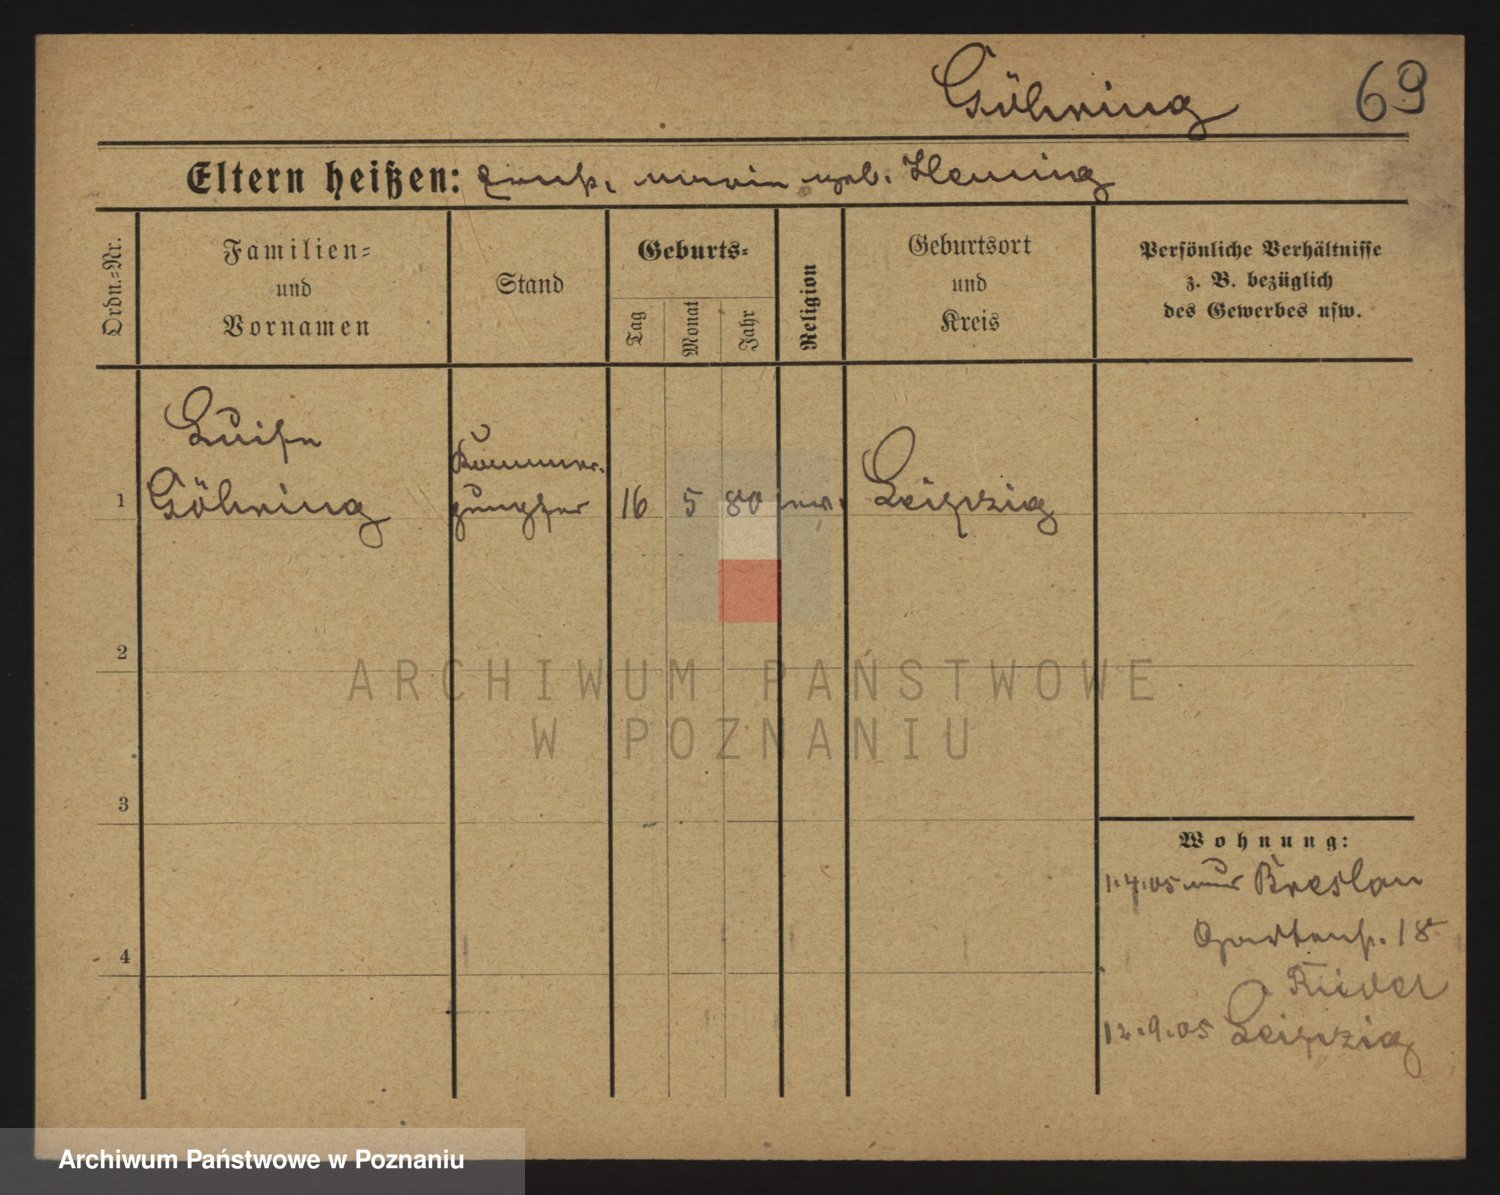 Göhring 69
Eltern heißen: Ernst, Marie geb. Henning
Ordn.=Nr.
Familien=
und
Vornamen
Stand
Geburts=
Tag
Monat
Jahr
Religion
Geburtsort
und
Kreis
Persönliche Verhältnisse
z. B. bezüglich
des Gewerbes usw.
Luise
Kammer-
1 Göhring jungfer 16 5 80 ev. Leipzig
2
ARCHIWUM PAŃSTWOWE
W POZNANIU
3
Wohnung:
1.4.05 aus Breslau
4 Gartenstr. 18
12.9.05 Leipzig
Archiwum Państwowe w Poznaniu